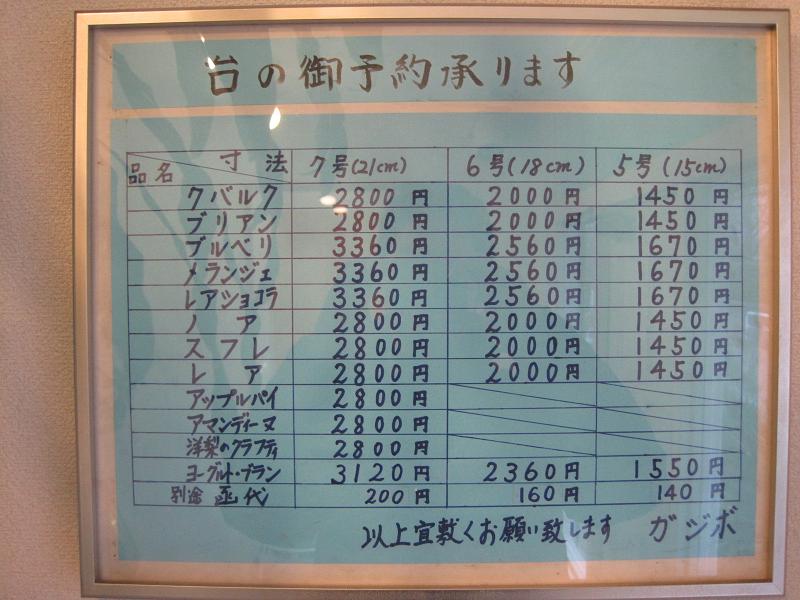 台の御予約承ります
品名 寸法 7号(21cm) 6号(18cm) 5号(15cm)
クバルク 2800円 2000円 1450円
ブリアン 2800円 2000円 1450円
ブルベリ 3360円 2560円 1670円
メランジェ 3360円 2560円 1670円
レアショコラ 3360円 2560円 1670円
ノア 2800円 2000円 1450円
スフレ 2800円 2000円 1450円
レア 2800円 2000円 1450円
アップルパイ 2800円
アマンディーヌ 2800円
洋梨のクラフティ 2800円
ヨーグルト・ブラン 3120円 2360円 1550円
別途函代 200円 160円 140円
以上宜敷くお願い致します ガジボ